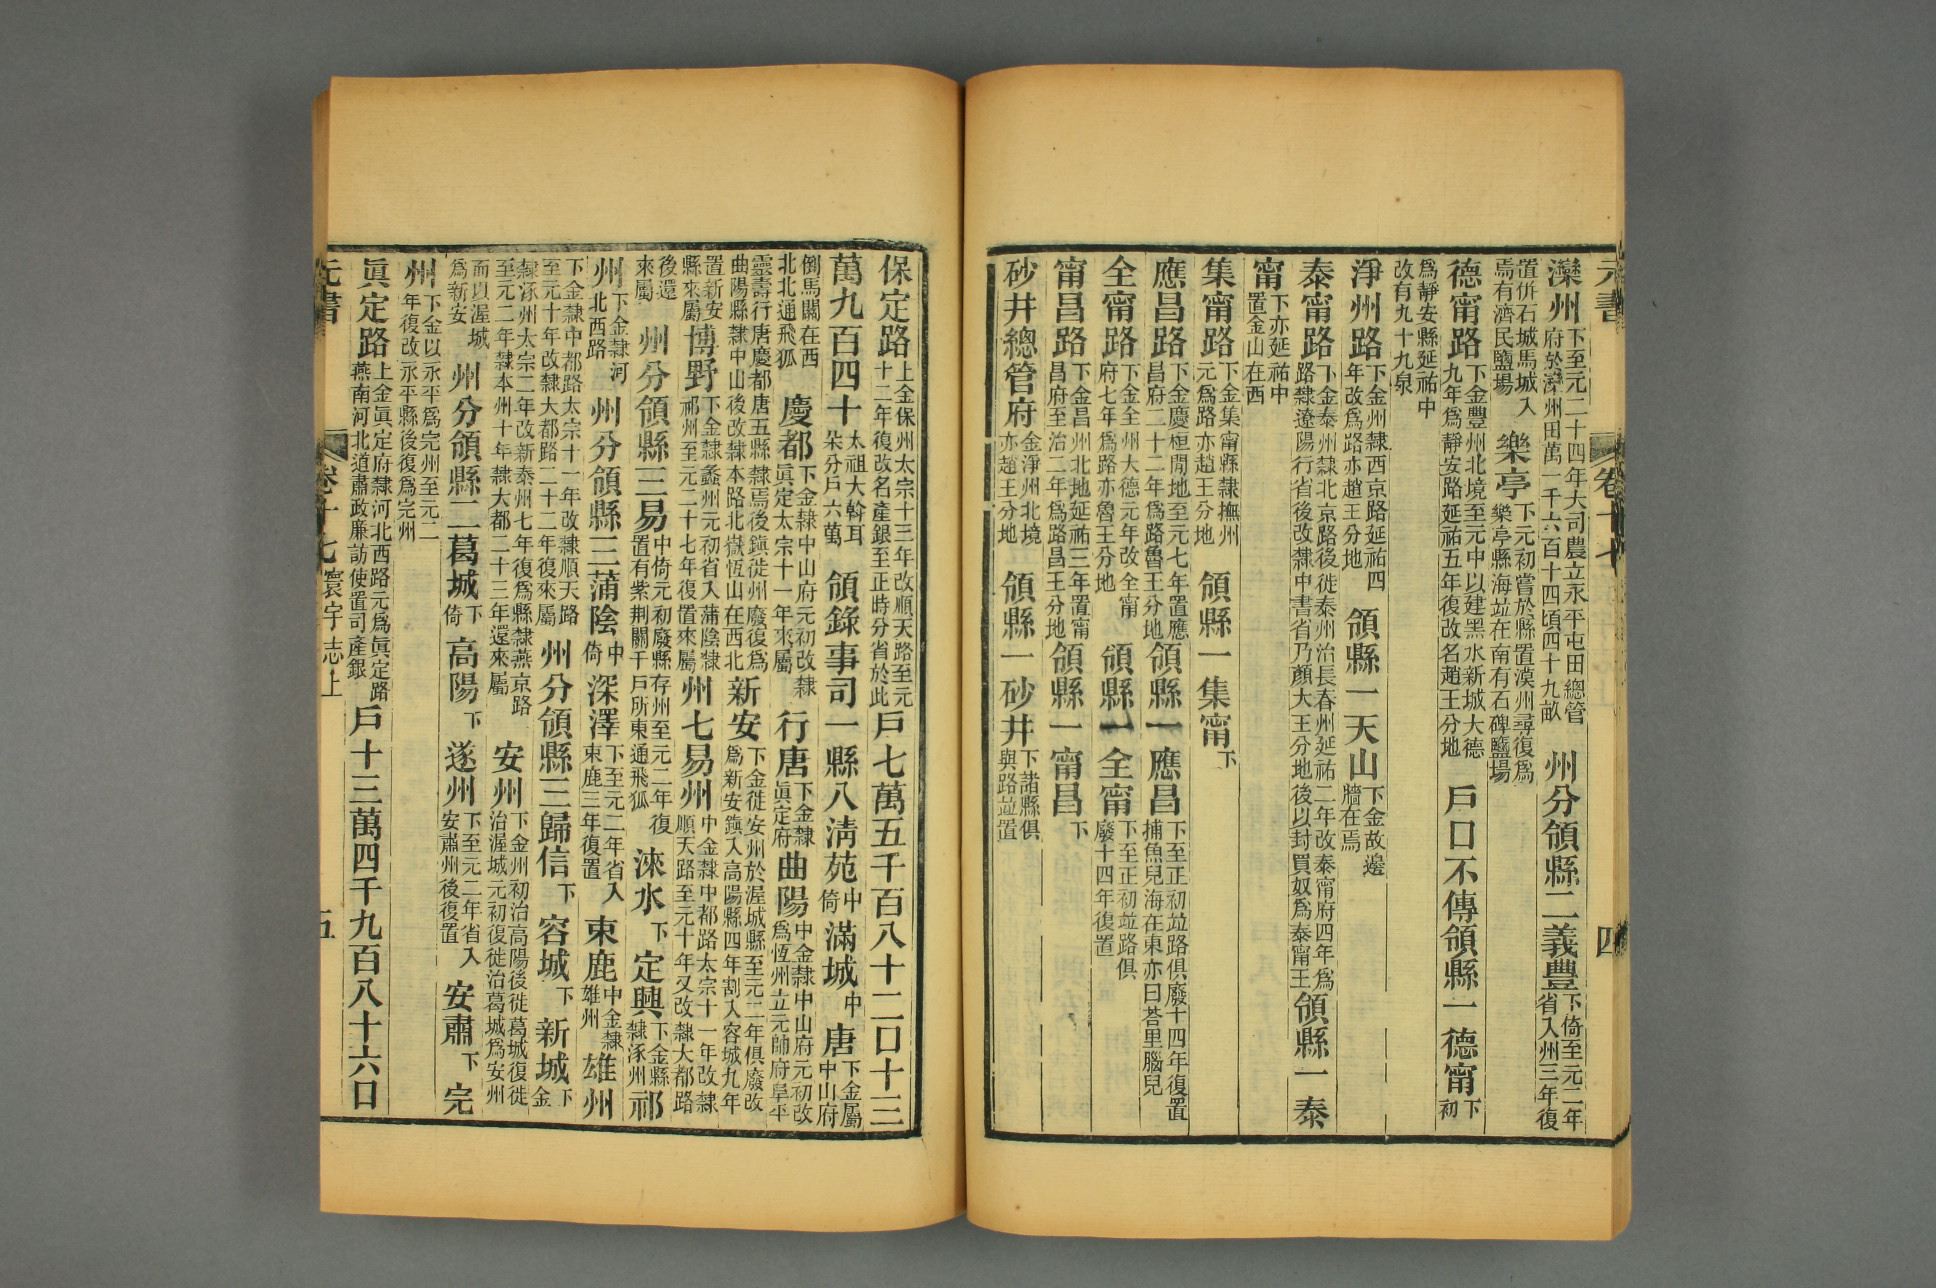 灤州下至元二十四年大司農立永平屯田總管府於灤州田萬一千六百十四頃四十九畝 州分領縣二義豐下倚至元二年省入州三年復
置併石城馬城入焉有濟民鹽場 樂亭下元初嘗於縣置漠州尋復爲樂亭縣海竝在南有石碑鹽場
德甯路下金豐州北境至元中以建黑水新城大德九年爲靜安路延祐五年復改名趙王分地 戶口不傳領縣一德甯下初
爲靜安縣延祐中改有九十九泉
淨州路下金州隸西京路延祐四年改爲路亦趙王分地 領縣一天山下金故邊牆在焉
泰甯路下金泰州隸北京路後徙泰州治長春州延祐二年改泰甯府四年爲路隸遼陽行省後改隸中書省乃顏大王分地後以封買奴爲泰甯王領縣一泰
甯下亦延祐中置金山在西
集甯路下金集甯縣隸撫州元爲路亦趙王分地 領縣一集甯下
應昌路下金慶桓閒地至元七年置應昌府二十二年爲路魯王分地領縣一應昌下至正初竝路俱廢十四年復置捕魚兒海在東亦曰荅里腦兒
全甯路下金全州大德元年改全甯府七年爲路亦魯王分地 領縣一全甯下至正初竝路俱廢十四年復置
甯昌路下金昌州北地延祐三年置甯昌府至治二年爲路昌王分地領縣一甯昌下
砂井總管府金淨州北境亦趙王分地 領縣一砂井下諸縣俱與路竝置
元書 卷十七 四
保定路上金保州太宗十三年改順天路至元十二年復改名產銀至正時分省於此戶七萬五千百八十二口十三
萬九百四十太祖大斡耳朵分戶六萬 領錄事司一縣八淸苑中倚滿城中唐下金屬中山府
倒馬關在西北北通飛狐 慶都下金隸中山府元初改隸眞定太宗十一年來屬 行唐下金隸眞定府曲陽中金隸中山府元初改爲恆州立元帥府阜平
靈壽行唐慶都唐五縣隸焉後鎮徙州廢復爲曲陽縣隸中山後改隸本路北嶽恆山在西北 新安下金徙安州於渥城縣至元二年俱廢改爲新安鎮入高陽縣四年割入容城九年
置新安縣來屬博野下金隸蠡州元初省入蒲陰隸祁州至元二十七年復置來屬 州七易州中金隸中都路太宗十一年改隸順天路至元十年又改隸大都路
後還來屬 州分領縣三易中倚元初廢縣存州至元二年復置有紫荆關千戶所東通飛狐 淶水下定興下金縣隸涿州祁
州下金隸河北西路 州分領縣三蒲陰中倚深澤下至元二年省入束鹿三年復置 束鹿中金隸雄州雄州
下金隸中都路太宗十一年改隸順天路至元十年改隸大都路二十二年復來屬 州分領縣三歸信下容城下新城下金
隸涿州太宗二年改新泰州七年復爲縣隸燕京路至元二年隸本州十年隸大都二十三年還來屬 安州下金州初治高陽後徙葛城復徙治渥城元初復徙治葛城爲安州
而以渥城爲新安 州分領縣二葛城下倚高陽下遂州下至元二年省入安肅州後復置 安肅下完
州下金以永平爲完州至元二年復改永平縣後復爲完州
眞定路上金眞定府隸河北西路元爲眞定路燕南河北道肅政廉訪使置司產銀 戶十三萬四千九百八十六口
元書 卷十七 寰宇志上 五